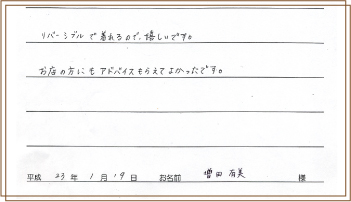 リバーシブルで着れるので、嬉しいです。
お店の方にもアドバイスもらえてよかったです。
平成 23 年 1 月 19 日 お名前 増田 有美 様